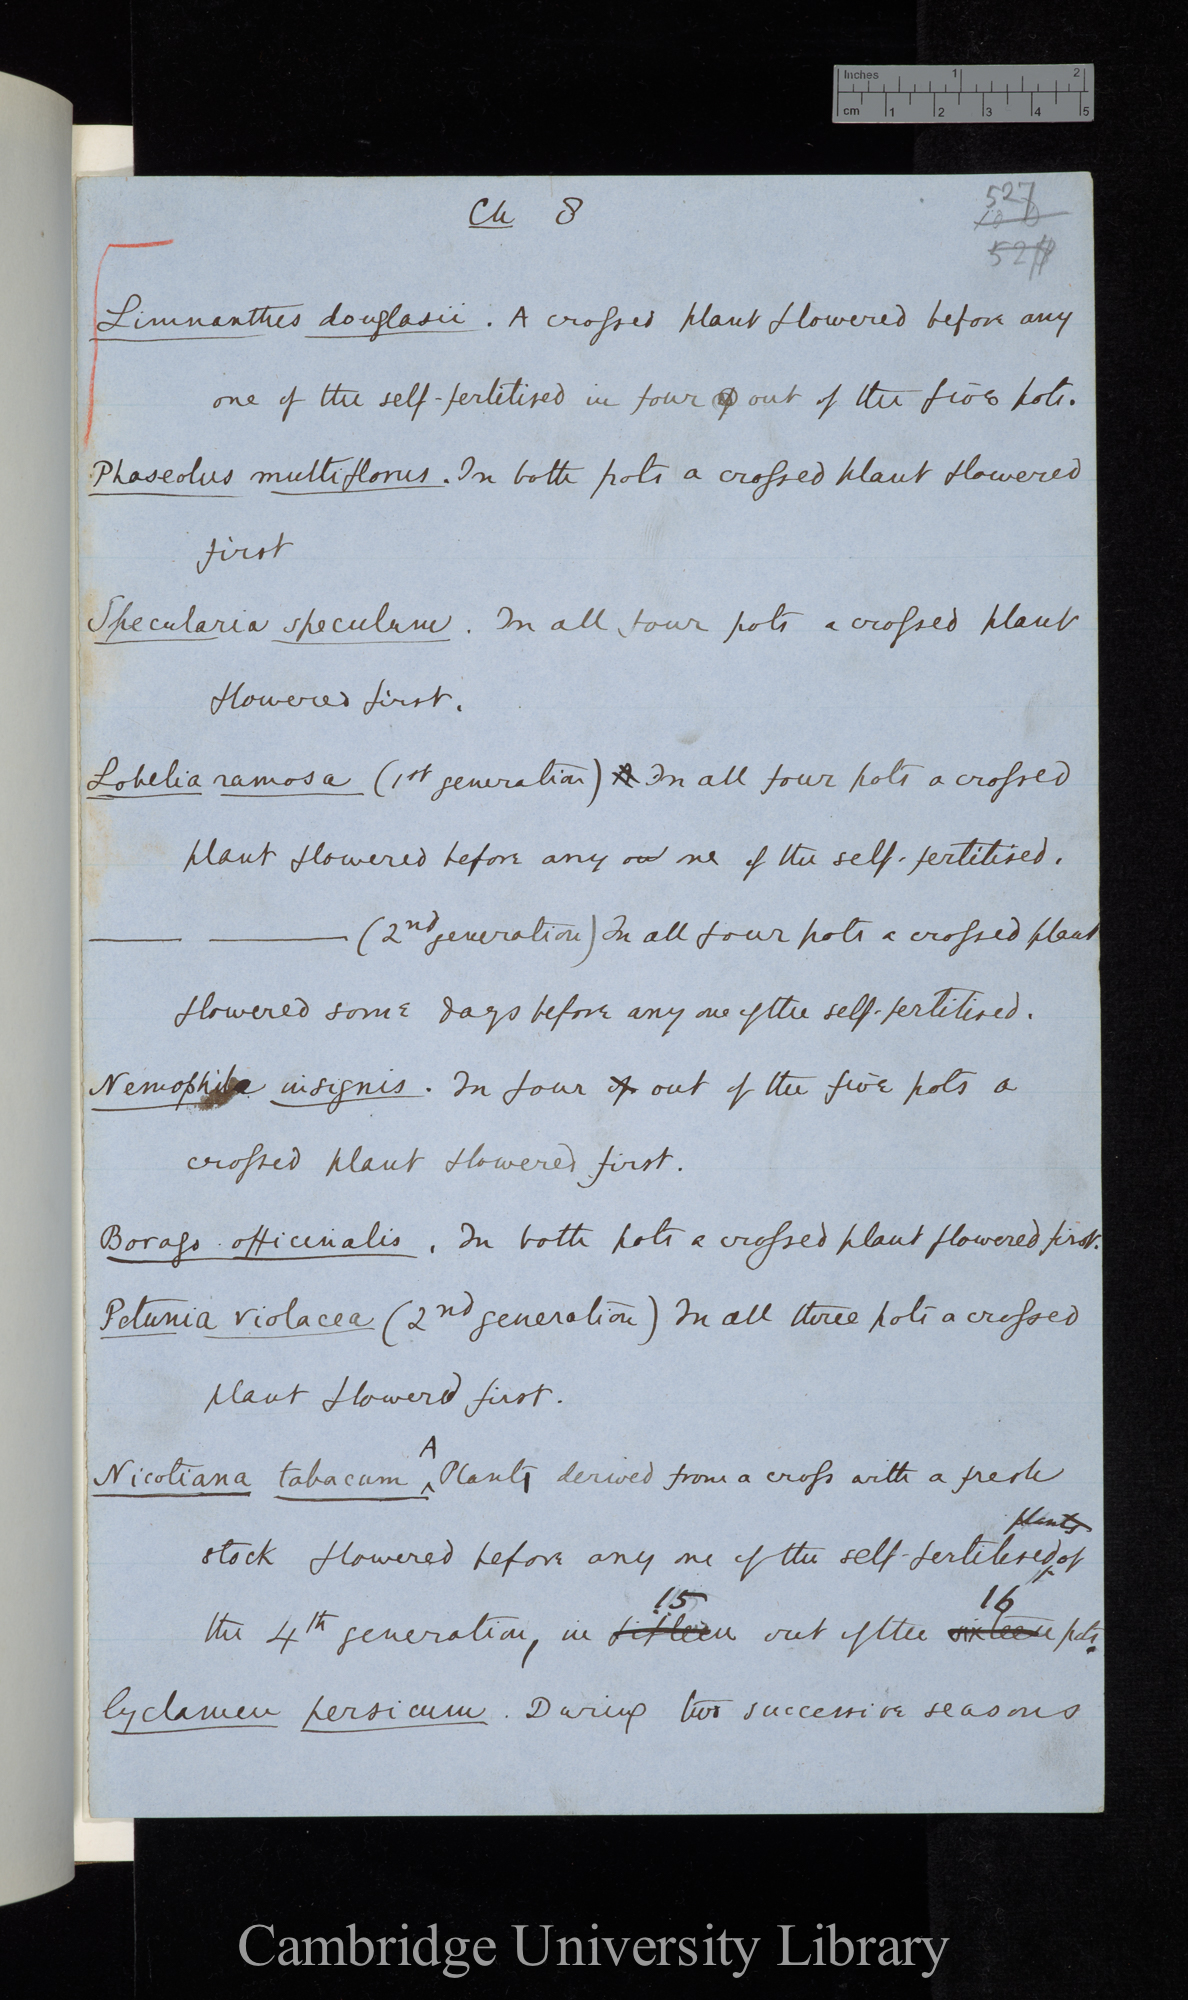 Inches 1 2
cm 1 2 3 4 5
Ch 8
527
528
Limnanthes douglasii. A crossed plant flowered before any
one of the self-fertilised in four of out of the five pots.
Phaseolus multiflorus. In both pots a crossed plant flowered
first
Specularia speculum. In all four pots a crossed plant
flowered first.
Lobelia ramosa (1st generation) A In all four pots a crossed
plant flowered before any on ne of the self-fertilised.
(2nd generation) In all four pots a crossed plant
flowered some days before any one of the self-fertilised.
Nemophila insignis. In four of out of the five pots a
crossed plant flowered first.
Borago officinalis. In both pots a crossed plant flowered first.
Petunia violacea (2nd generation) In all three pots a crossed
plant flowered first.
A
Nicotiana tabacum ^ Plants derived from a cross with a fresh
plants
stock flowered before any one of the self-fertilised ^ of
15 16
the 4th generation, in fifteen out of the sixteen pots.
Cyclamen persicum. During two successive seasons
Cambridge University Library